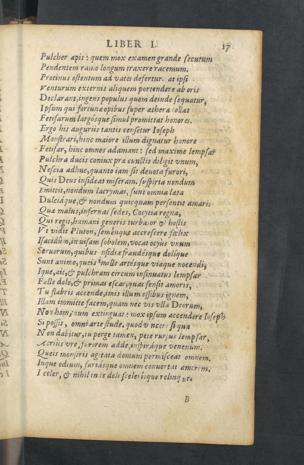 LIBER I. 17
Pulcher apis: quem mox examen grande secutum
Pendentem ramo longum traxere racemum.
Protinus ostentum ad vates defertur. at ipsi
Venturum externis aliquem portendere ab oris
Declarant, ingens populus quem deinde sequatur,
Ipsum qui fortuna opibus super æthera tollat
Letisarum largósque simul promittat honores.
Ergo his auguriis tantis censetur Ioseph
Monstrari, hinc maiore illum dignatur honore
hinc omnes adamant: sed maxime lempsar
Pulchra ducis coniux præ cunctis diligit vnum,
Nescia adhuc, quanto iam sit deuota furori,
Quis Deus insideat miseram. suspiria nondum
Emittit, nondum lacrymas, sunt omnia læta
Dulciáque, & nondum quicquam persentit amari.
Qua malus, infernas sedes, Cocytia regna,
Qui regit, humani generis turbator & hostis
Vt vidit Pluton, semperque accrescere fœlix
Isacidûm, inuisam sobolem, vocat ocyus vnum
Seruorum, quibus insidiæ fraudesque dolique
Sunt animo, quéis mille artésque viæque nocendi,
Ique, ait, & pulchram circum insinuatus lempsar
Falle dolo, & primas escas, quæ sensit amoris,
Tu flabris accende, imis illum ossibus ignem,
Illam immitte facem, quam nec vis vlla Deorum,
Non hominum extinguat: mox ipsum accendere Ioseph
Si possis, omni arte stude. quod v ncere si qua
Non dabitur, tu perge tamen, pete rursus lempsar,
Acriùs vre, furorem adde, inspiráque venenum.
Queis monstris agitata domum permisceat omnem,
Inque odium, furiásque omnem conuertat amorem,
I celer, & nihil in te doli scelerísque relinque.
B